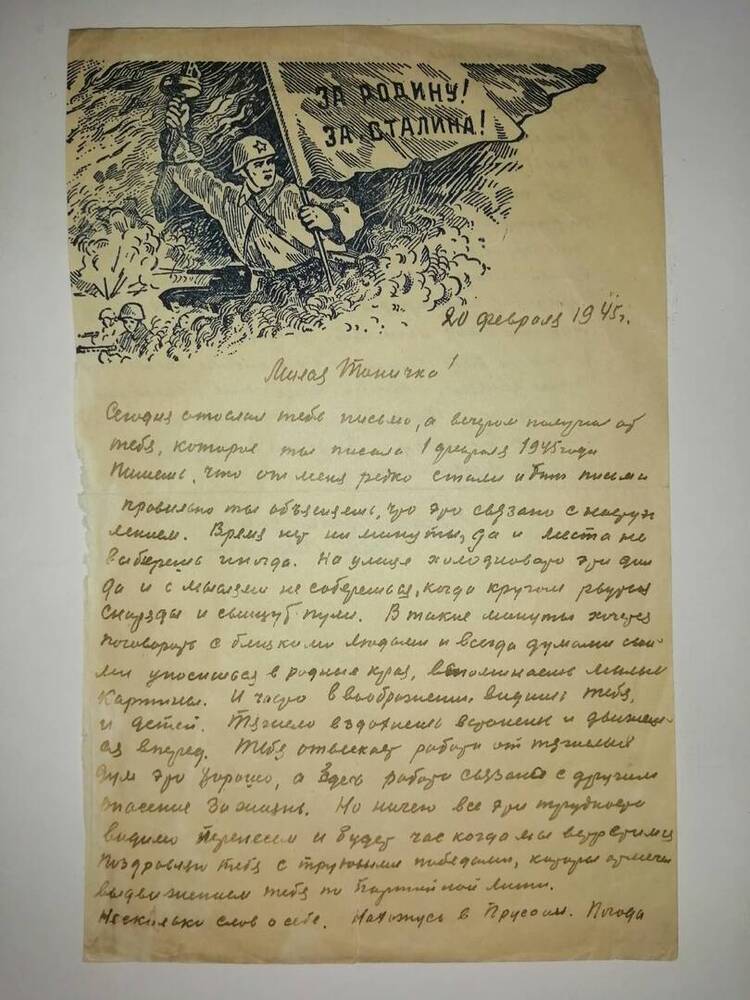 ЗА РОДИНУ!
ЗА СТАЛИНА!
20 февраля 1945г.
Милая Тоничка!
Сегодня отослал тебе письмо, а вечером получил от
тебя, которое ты писала 1 февраля 1945 года
Пишешь, что от меня редко стали письма
правильно ты объясняешь, что это связано с наступ
лением. Время нет ни минуты, да и места не
выберешь иногда. На улице холодновато эти дни
да и с мыслями не соберешься, когда кругом рвутся
снаряды и свищут пули. В такие минуты хочется
поговорить с близкими людьми и всегда думами свои
ми уносишься в родные края, вспоминаешь милые
картины. И часто в воображении видишь тебя,
и детей. Тяжело вздохнешь встанешь и движешь
ся вперед. Тебя отвлекает работа от тяжелых
дум это хорошо, а здесь работа связана с другим
опасение за жизнь. Но ничего все эти трудности
видимо перенесем и будет час когда мы встретимся
Поздравляю тебя с трудовыми победами, которые отмечен
выдвижением тебя по партийной линии.
Несколько слов о себе. Нахожусь в Пруссии. Погода